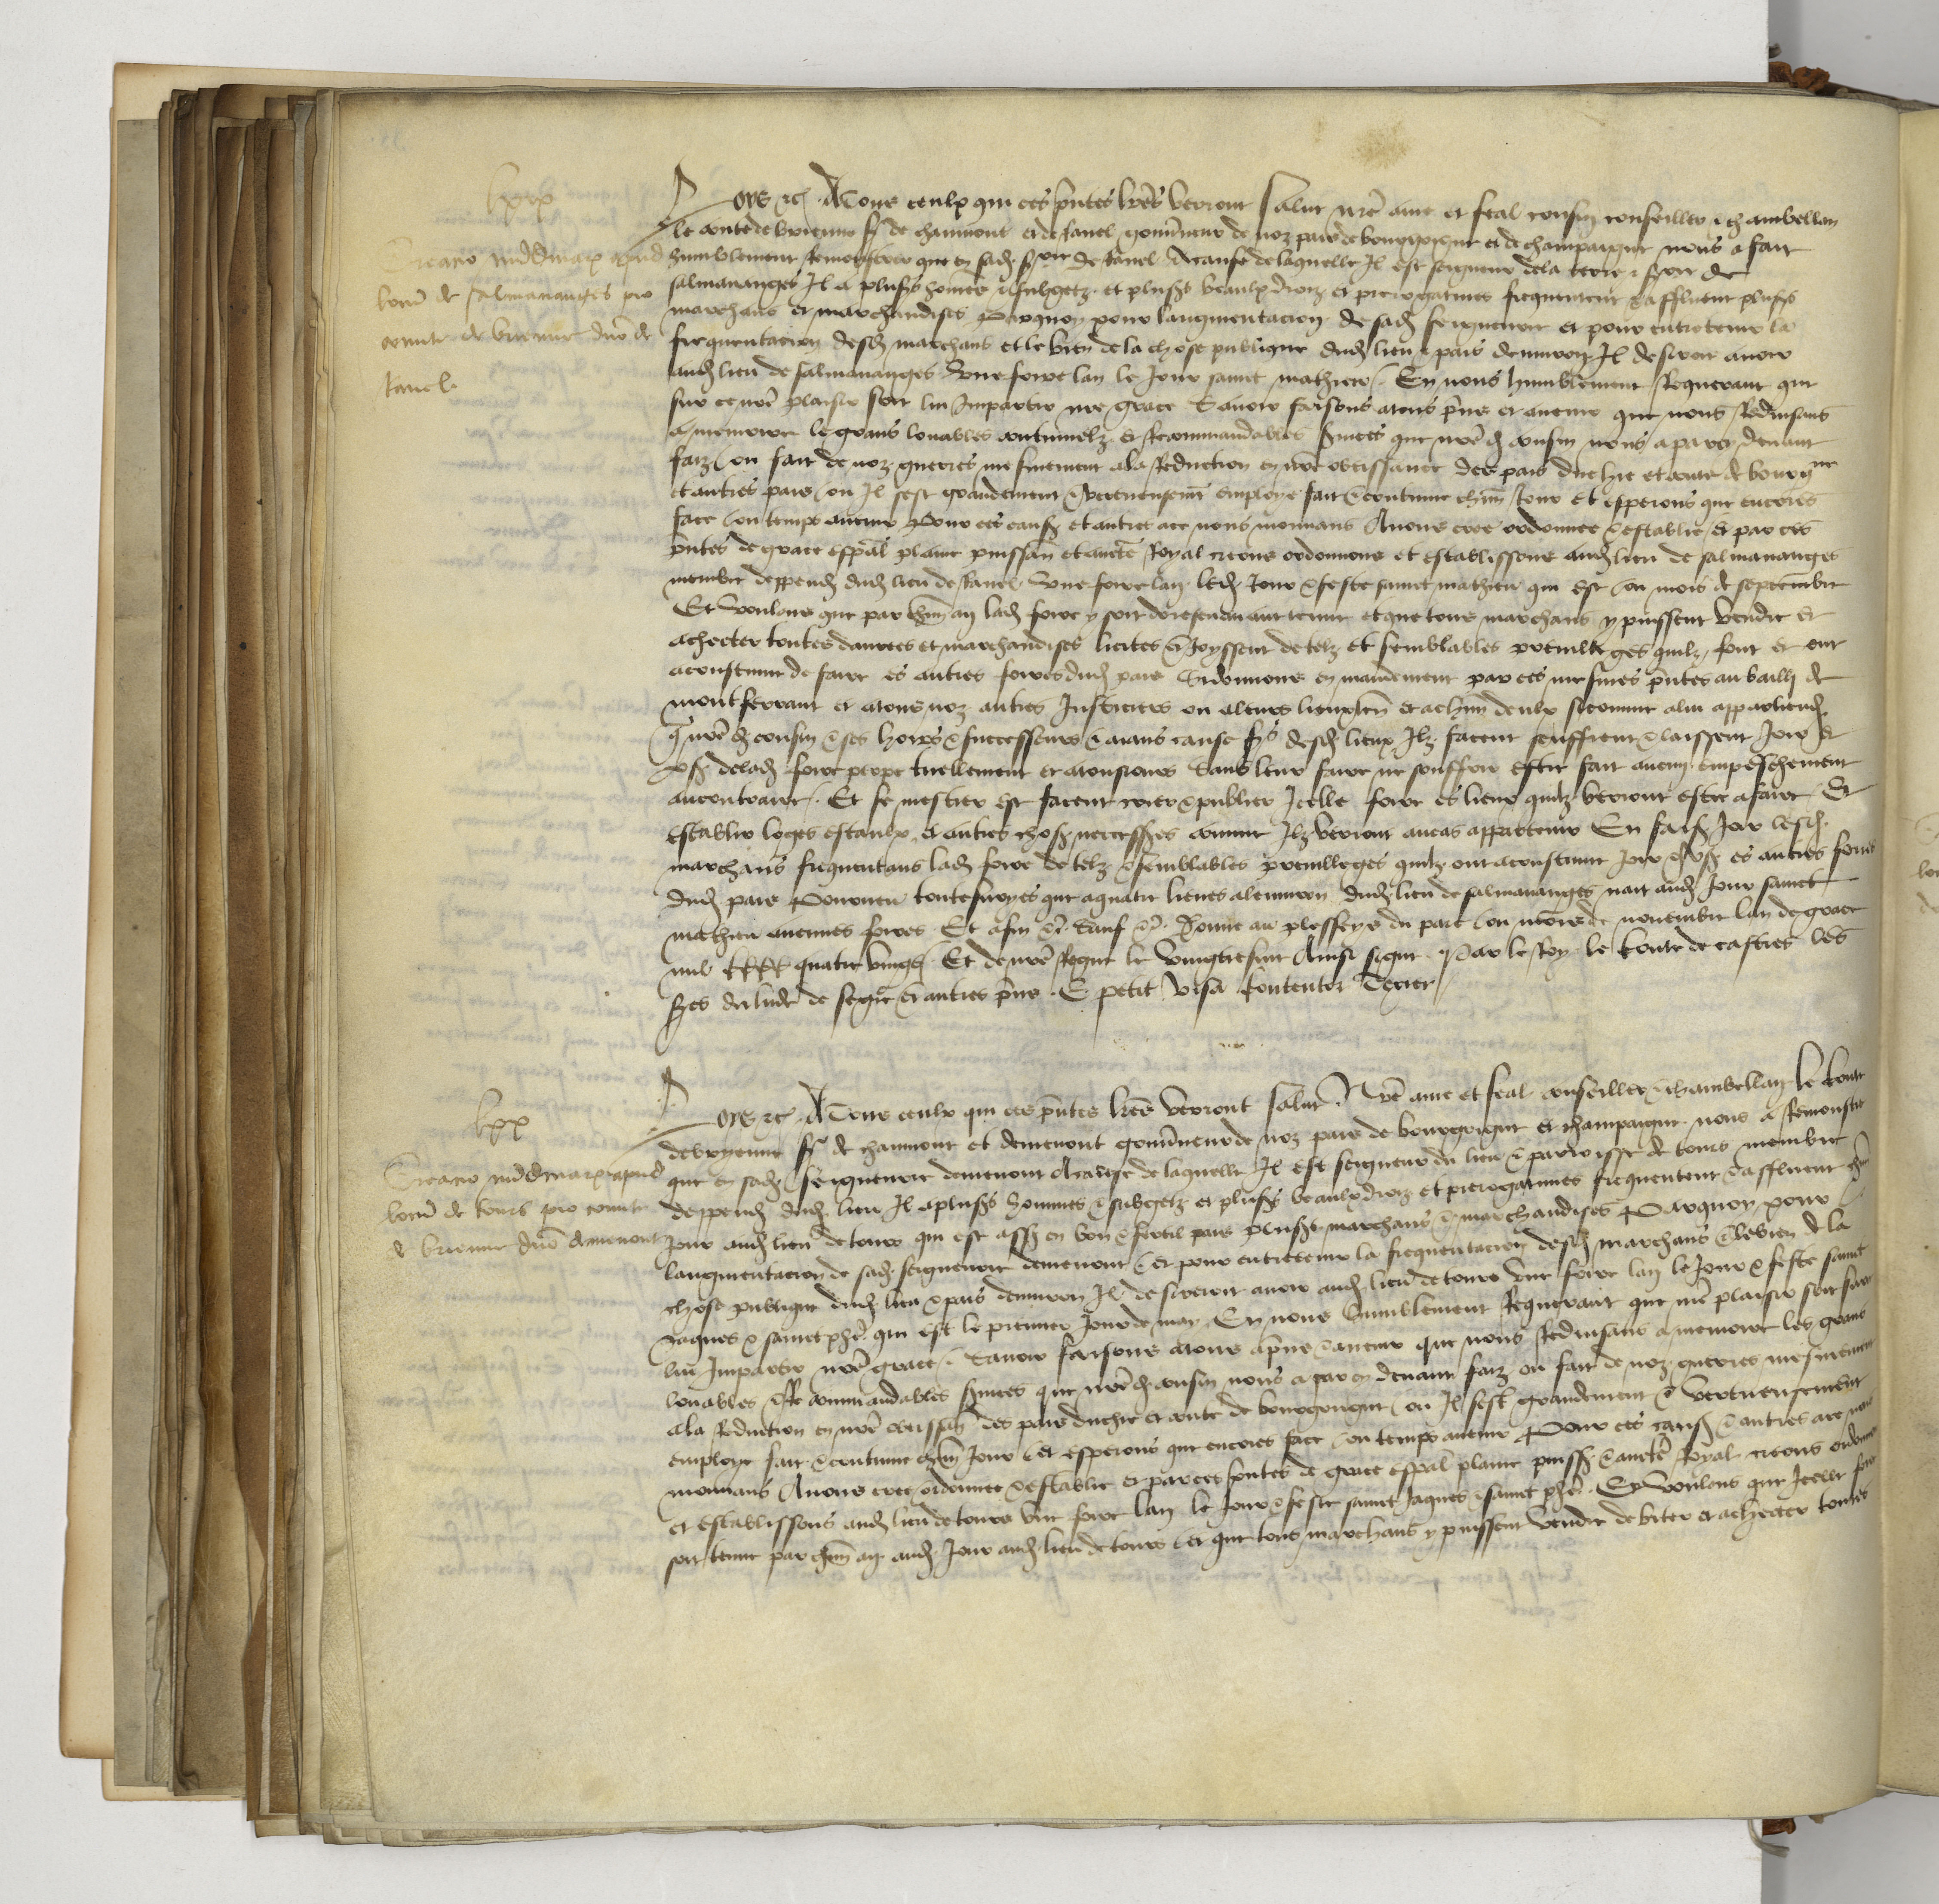 lxix
Creatio nundinarum apud
locum de salmaranges pro
comite de brienne domino de
rauel
Loys etc. A Tous ceulx qui ces pntes lres verront salut nre ame et feal cousin conseiller & chambellan
le conte de brienne sr de chaumont et de rauel gouuneur de noz pais de bourgoigne et de champaigne nous a fait
humblement remonstrer que en sad. srie de rauel Acause de laquelle Il est seigneur dela terre & srie de
salmaranges Il a plusrs homes & subgetz et plusrs beaulx droiz et prerogatiues frequentent & affluent plusrs
marchans et marchandises Parquoy pour laugmentacion de sad. seigneurie et pour entretenir la
frequentacion desd. marchans et le bien de la chose publique dud. lieu & pais denuiron Il desiroit auoir
aud. lieu de salmaranges Vne foire lan le Jour saint mathieu. En nous humblement Requerant que
sur ce nre plaisir soit lui Impartir nre grace Sauoir faisons atous pns et auenir que nous Reduisans
a memoire les grans louables continuelz et Recommandables seruices que nre d. cousin nous a par cy deuant
faiz ou fait de noz guerres mesmement ala Reduction en nre obeissance des pais duchie et conte de bourgne
et autres pais ou Il sest grandement & vertueusement employe fait & continue chun Jour et esperons que encores
face ou temps auenir Pour ces causes et autres ace nous mouuans Auons cree ordonnee & establie et par ces
pntes de grace espal plaine puissance et aucte Royal creons ordonnons et establissons aud. lieu de salmaranges
membre deppend. dud. lieu de rauel Vne foire lan led. Jour & feste saint mathieu qui est ou mois de septembre
Et Voulons que par chun an lad. foire y soit doresenauant tenue et que tous marchans y puissent vendre et
achecter toutes danrees et marchandises licites & Joyssent de telz et semblables preuilleges quilz font et ont
acoustume de faire es autres foires dud. pais Si donnons en mandement par ces mesmes pntes au bailli de
montferrant et atous noz autres Justiciers ou aleurs lieuxten et achun deulx sicomme alui appartiend.
que nre d. cousin & ses hoirs & successeurs & aians cause srs desd. lieux Ilz facent seuffrent & laissent Joir et
vser delad. foire perpetuellement et atousiours Sans leur faire ne souffrir estre fait aucun empeschement
au contraire. Et se mestier est facent crier & publier Icelle foire es lieux quilz verront estre afaire Et
establir loges estaulx et autres choses necesses comme Ilz verront aucas appartenir En faisant Joir lesd.
marchans frequentans lad. foire de telz & semblables preuilleges quilz ont acoustume Joir & vser es autres foires
dud. pais Pourueu toutesuoyes que aquatre lieues alenuiron dud. lieu de salmaranges nait aud. Jour saint
mathieu aucunes foires Et afin &c. Sauf &c. Donne au plesseys du parc ou mois de nouembre lan de grace
mil CCCC quatre vingts Et de nre Regne le vingtiesme Ainsi signe Par le Roy le conte de castres les
srs du lude de segre & autres pns E petit visa Contentor Texier
lxx
Creatio nundinarum apud
locum de tours pro comite
de brienne domino demenont
Loys etc. A Tous ceulx qui ces pntes lres verront salut. Nre ame et feal conseiller & chambellan le conte
de bryenne sr de chaumont et demenont gouuneur de noz pais de bourgoigne et champaigne nous a Remonstre
que en sad. seigneurie demenont Acause de laquelle Il est seigneur du lieu & parroisse de tours membre
deppend. dud. lieu Il a plusrs hommes & subgetz et plusrs beaulx droiz et prerogatiues frequentent & affluent chun
Jour aud. lieu de tours qui est assis en bon & fertil pais plusrs marchans & marchandises Parquoy pour
laugmentacion de sad. seigneurie demenont & et pour entretenir la frequentacion desd. marchans & le bien de la
chose publique dud. lieu & pais denuiron Il desireroit auoir aud. lieu de tours vne foire lan le Jour & feste saint
Jaques & saint phe. qui est le premier Jour de may En nous humblement Requerant que nre plaisir soit sur ce
lui Impartir nre grace. Sauoir faisons atous apns & auenir que nous Reduisans a memoire les grans
louables & Recommandables seruices que nre d. cousin nous a par cy deuant faiz ou fait de noz guerres mesmement
ala Reduction en nre obeissance des pais duchie et conte de bourgongne ou Il sest grandement & vertueusement
employe fait & continue chun Jour et esperons que encores face ou temps auenir Pour ces causes & autres ace nous
mouuans Auons cree ordonnee & establie et par ces pntes de grace espal plaine puiss. & aucte Royal creons ordonnons
et establissons aud. lieu de tours vne foire lan le Jour & feste saint Jaques & saint phe. Et Voulons que Icelle foire
soit tenue par chun an aud. Jour aud. lieu de tours et que tous marchans y puissent vendre debiter et achecter toutes